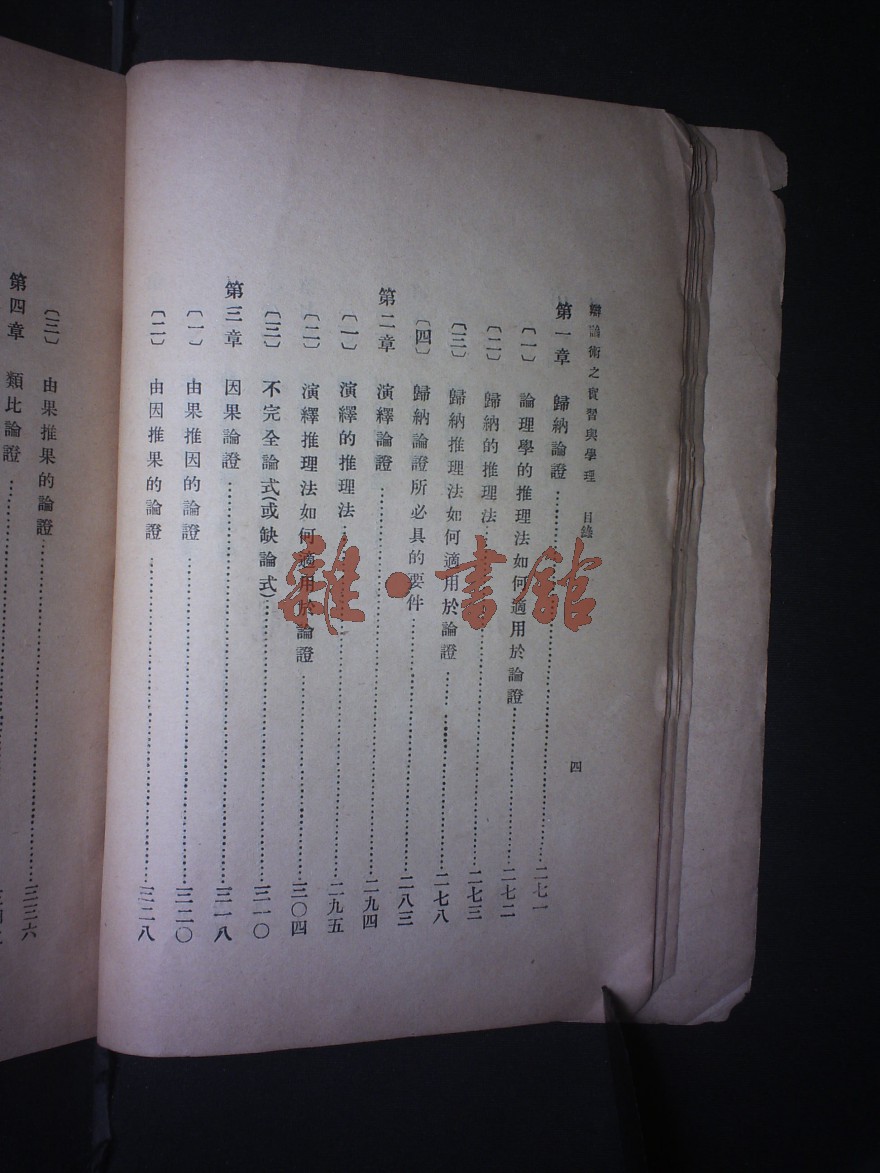 辯論術之實習與學理 目錄 四
第一章 歸納論證…………二七一
〔一〕 論理學的推理法如何適用於論證…………二七二
〔二〕 歸納的推理法…………二七三
〔三〕 歸納推理法如何適用於論證…………二七八
〔四〕 歸納論證所必具的要件…………二八三
第二章 演繹論證…………二九四
〔一〕 演繹的推理法…………二九五
〔二〕 演繹推理法如何適用於論證…………三〇四
〔三〕 不完全論式(或缺論式)…………三一〇
第三章 因果論證…………三一八
〔一〕 由果推因的論證…………三二〇
〔二〕 由因推果的論證…………三二八
〔三〕 由果推果的論證…………三三六
第四章 類比論證…………
雜·書館